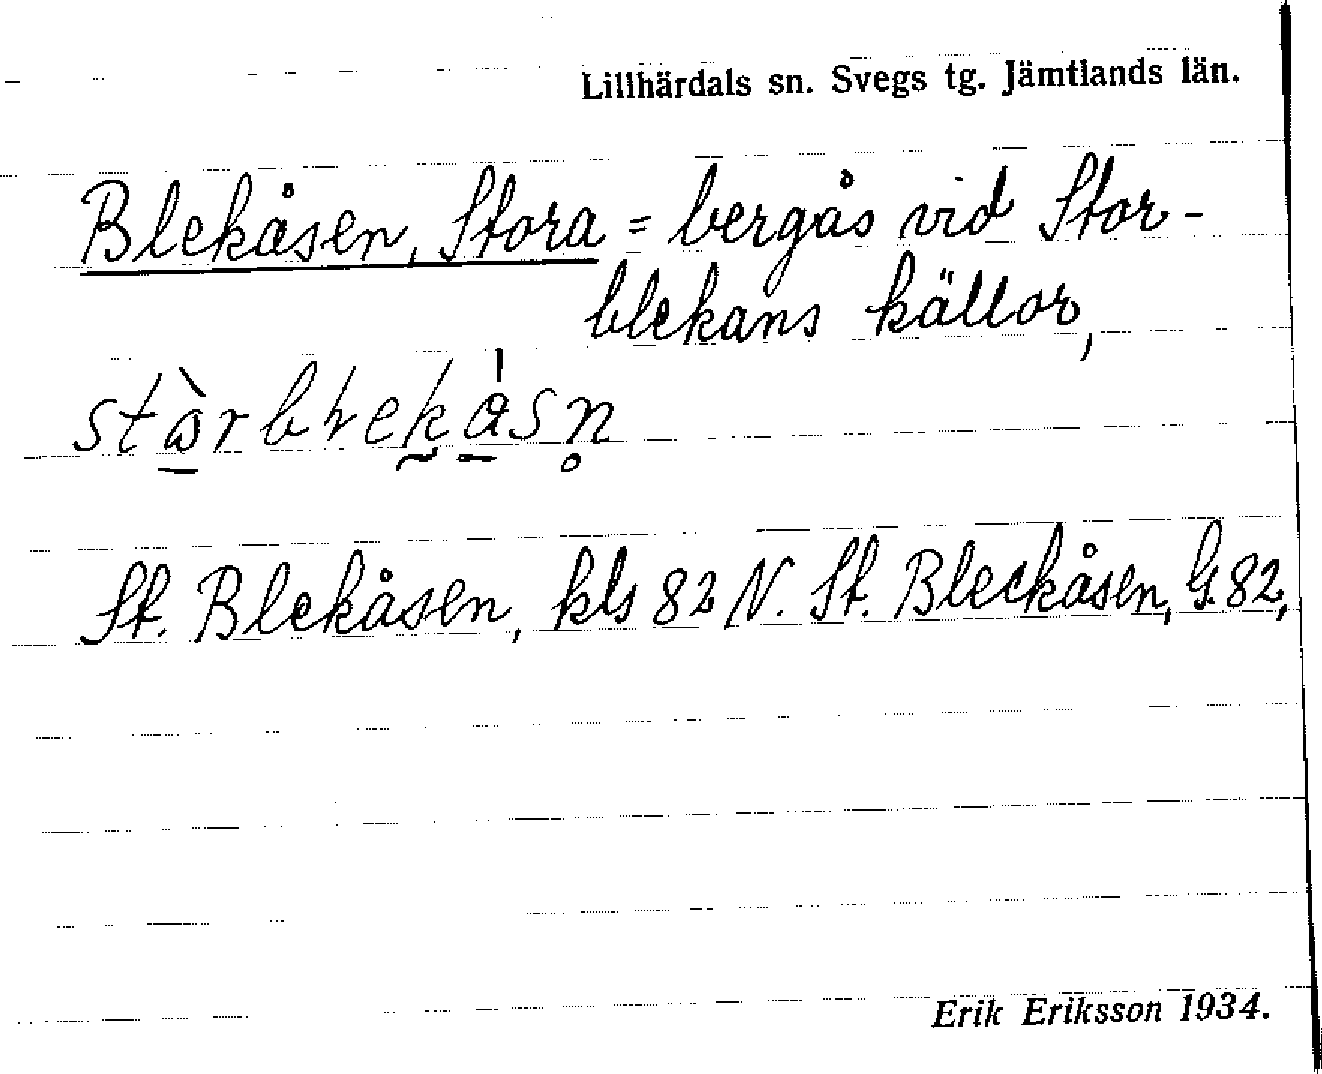 Lillhärdals sn. Svegs tg. Jämtlands län.
Blekåsen, Stora = bergås vid Stor-
blekans källor,
St. Blekåsen, kls 82 N. St. Bleckåsen, G. 82,
Erik Eriksson 1934.